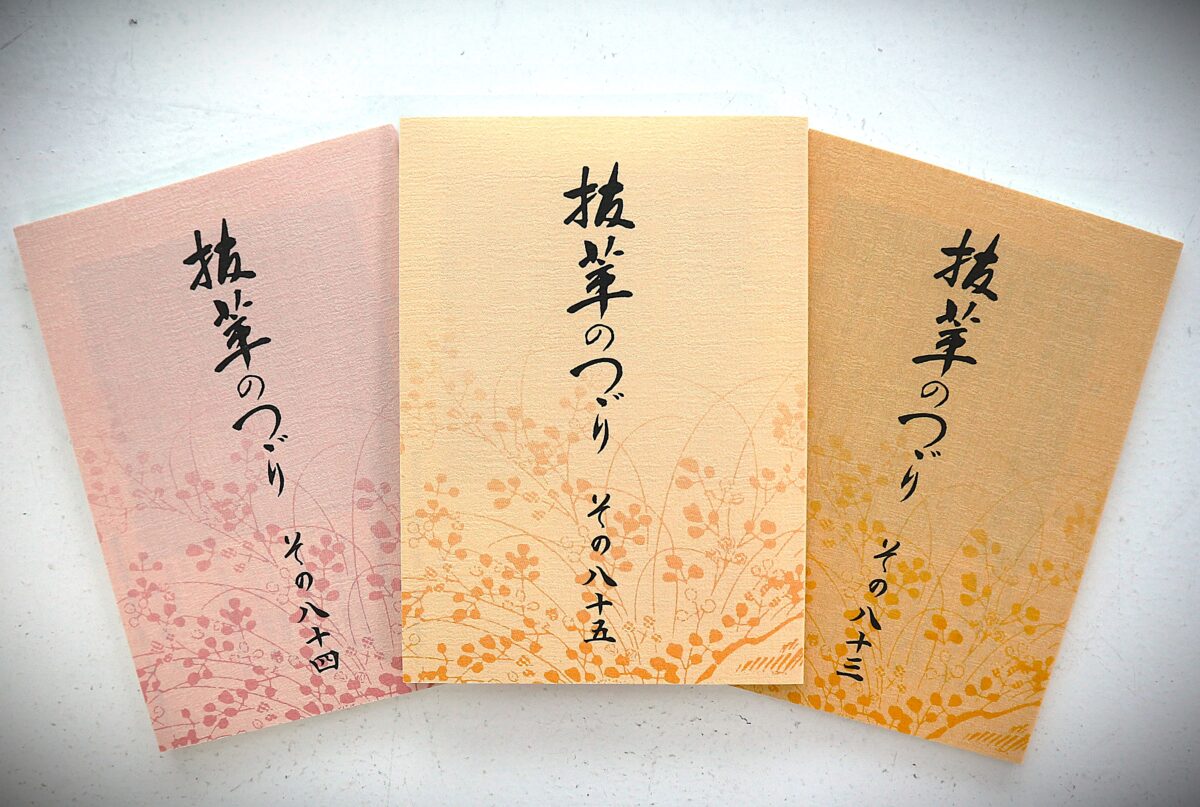 抜萃のつづり その八十四
抜萃のつづり その八十五
抜萃のつづり その八十三